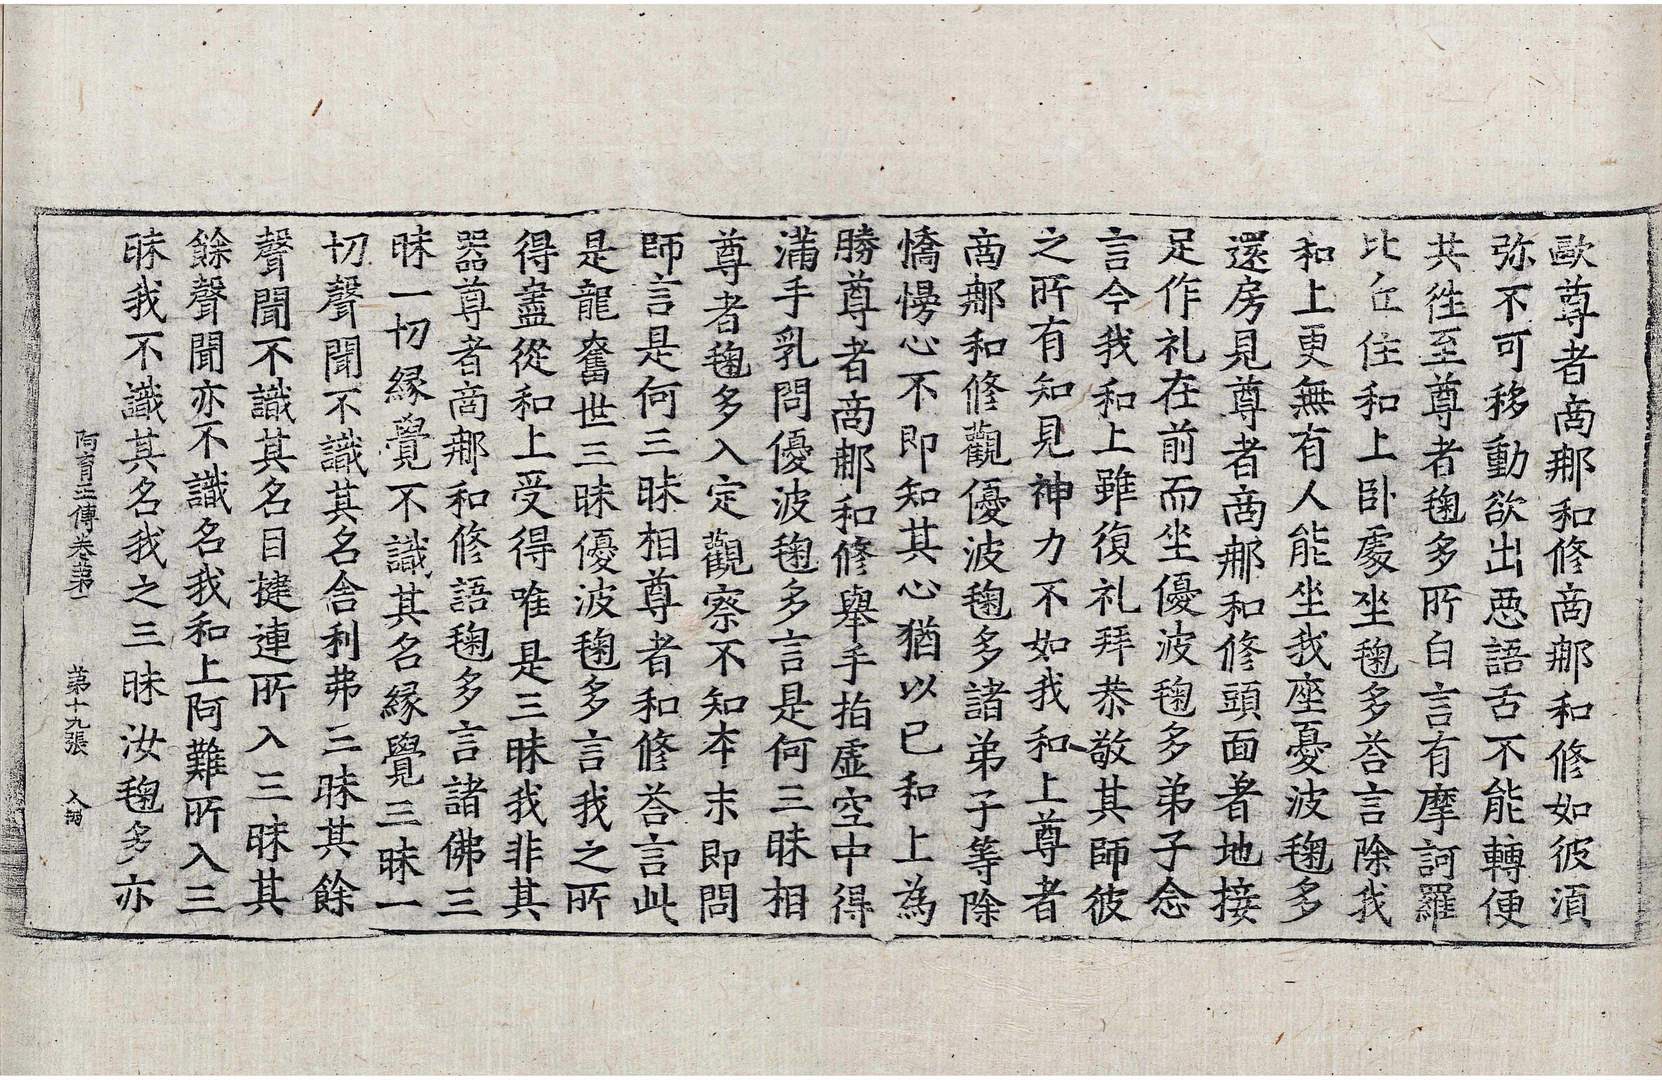 歐尊者商那和修商那和修如彼湏
弥不可移動欲出惡語舌不能轉便
共徃至尊者毱多所白言有摩訶羅
比丘住和上卧處坐毱多荅言除我
和上更無有人能坐我座憂波毱多
還房見尊者商那和修頭面著地接
足作礼在前而坐優波毱多弟子念
言今我和上雖復礼拜恭敬其師彼
之所有知見神力不如我和上尊者
商那和修觀優波毱多諸弟子等除
憍慢心不即知其心猶以已和上為
勝尊者商那和修舉手指虛空中得
滿手乳問優波毱多言是何三昧相
尊者毱多入定觀察不知本末即問
師言是何三昧相尊者和修荅言此
是龍奮迅三昧優波毱多言我之所
得盡從和上受得唯是三昧我非其
器尊者商那和修語毱多言諸佛三
昧一切縁覺不識其名縁覺三昧一
切聲聞不識其名舍利弗三昧其餘
聲聞不識其名目揵連所入三昧其
餘聲聞亦不識名我和上阿難所入三
昧我不識其名我之三昧汝毱多亦
阿育王傳卷第一 第十九張